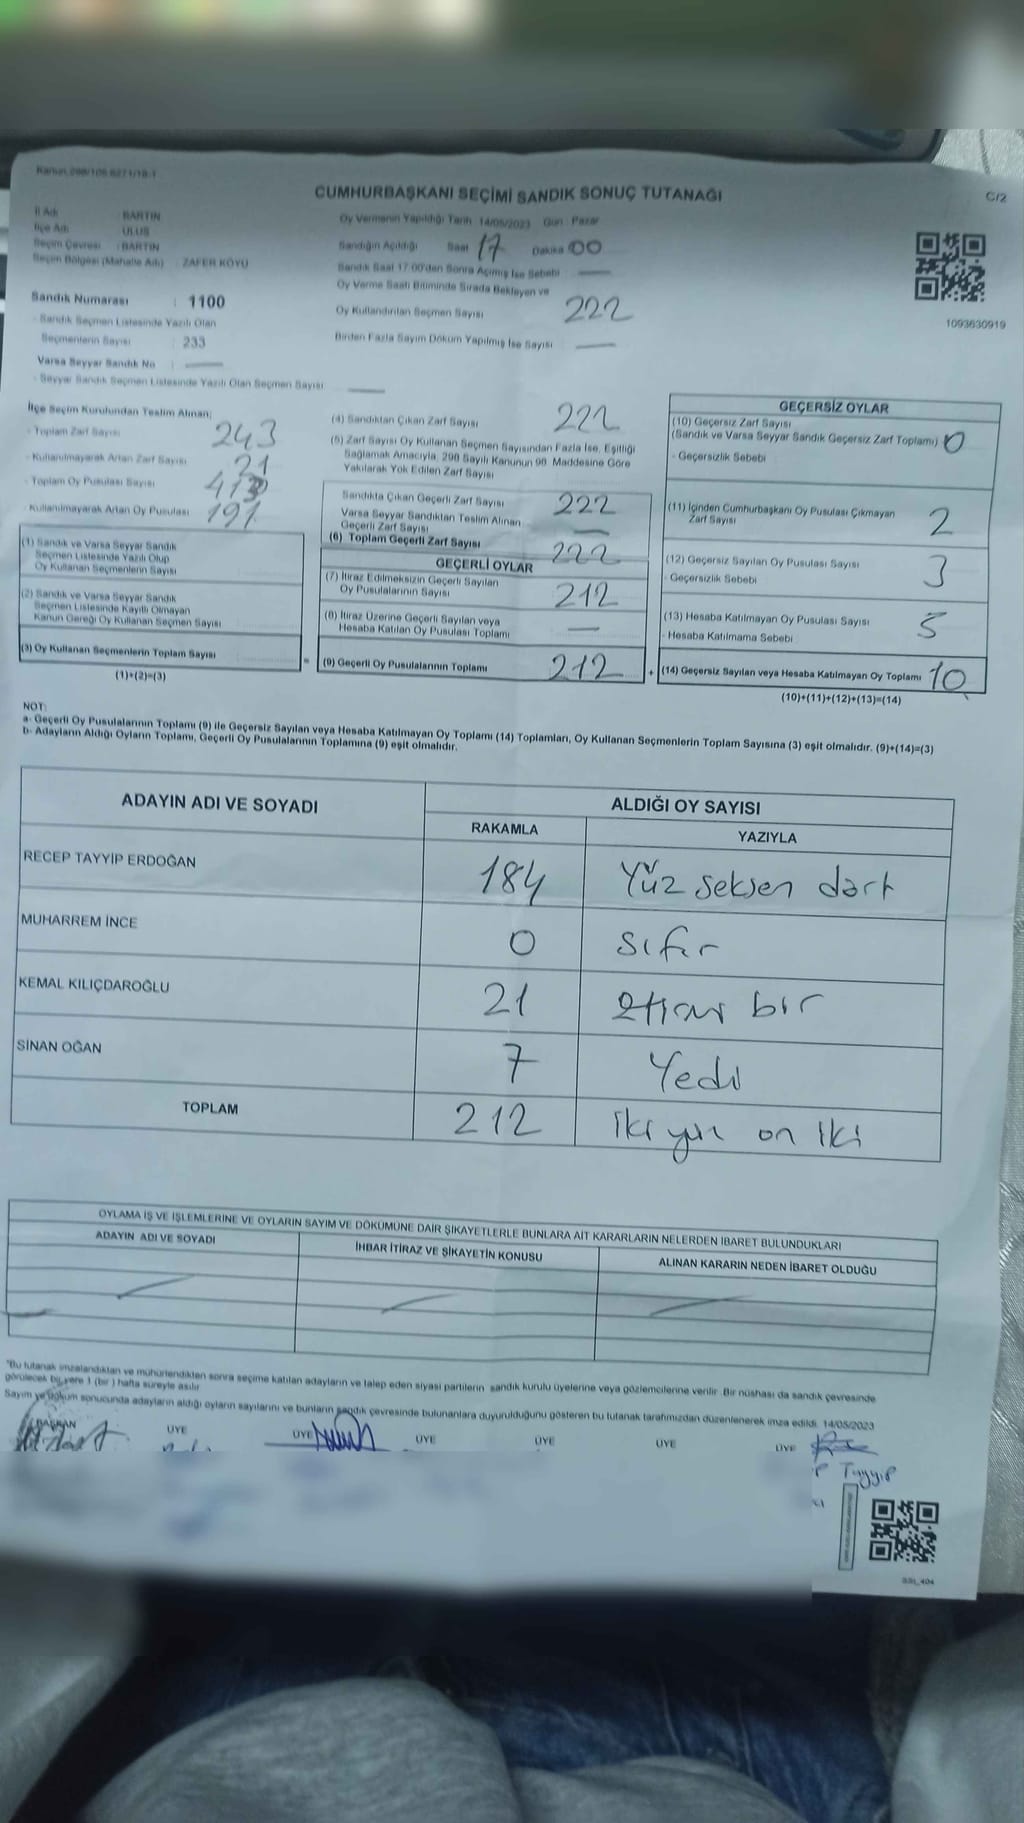 Kanun 298/105 6271/18-1
CUMHURBAŞKANI SEÇİMİ SANDIK SONUÇ TUTANAĞI
C/2
İl Adı : BARTIN
İlçe Adı : ULUS
Seçim Çevresi : BARTIN
Seçim Bölgesi (Mahalle Adı) : ZAFER KÖYÜ
Oy Vermenin Yapıldığı Tarih 14/05/2023 Gün : Pazar
Sandığın Açıldığı Saat 17 Dakika 00
Sandık Saat 17:00'den Sonra Açılmış İse Sebebi
Oy Verme Saati Bitiminde Sırada Bekleyen ve
Oy Kullandırılan Seçmen Sayısı 222
Birden Fazla Sayım Döküm Yapılmış İse Sayısı
1093630919
Sandık Numarası : 1100
- Sandık Seçmen Listesinde Yazılı Olan
Seçmenlerin Sayısı : 233
Varsa Seyyar Sandık No :
- Seyyar Sandık Seçmen Listesinde Yazılı Olan Seçmen Sayısı
İlçe Seçim Kurulundan Teslim Alınan;
- Toplam Zarf Sayısı 243
- Kullanılmayarak Artan Zarf Sayısı 21
- Toplam Oy Pusulası Sayısı
- Kullanılmayarak Artan Oy Pusulası 191
(1) Sandık ve Varsa Seyyar Sandık
Seçmen Listesinde Yazılı Olup
Oy Kullanan Seçmenlerin Sayısı
(2) Sandık ve Varsa Seyyar Sandık
Seçmen Listesinde Kayıtlı Olmayan
Kanun Gereği Oy Kullanan Seçmen Sayısı
(3) Oy Kullanan Seçmenlerin Toplam Sayısı
(1)+(2)=(3)
=
(4) Sandıktan Çıkan Zarf Sayısı 222
(5) Zarf Sayısı Oy Kullanan Seçmen Sayısından Fazla İse, Eşitliği
Sağlamak Amacıyla, 298 Sayılı Kanunun 98. Maddesine Göre
Yakılarak Yok Edilen Zarf Sayısı
Sandıkta Çıkan Geçerli Zarf Sayısı 222
Varsa Seyyar Sandıktan Teslim Alınan
Geçerli Zarf Sayısı
(6) Toplam Geçerli Zarf Sayısı 222
GEÇERLİ OYLAR
(7) İtiraz Edilmeksizin Geçerli Sayılan
Oy Pusulalarının Sayısı 212
(8) İtiraz Üzerine Geçerli Sayılan veya
Hesaba Katılan Oy Pusulası Toplamı
(9) Geçerli Oy Pusulalarının Toplamı 212
+
GEÇERSİZ OYLAR
(10) Geçersiz Zarf Sayısı
(Sandık ve Varsa Seyyar Sandık Geçersiz Zarf Toplamı) 0
- Geçersizlik Sebebi
(11) İçinden Cumhurbaşkanı Oy Pusulası Çıkmayan
Zarf Sayısı 2
(12) Geçersiz Sayılan Oy Pusulası Sayısı 3
- Geçersizlik Sebebi
(13) Hesaba Katılmayan Oy Pusulası Sayısı 5
- Hesaba Katılmama Sebebi
(14) Geçersiz Sayılan veya Hesaba Katılmayan Oy Toplamı 10
(10)+(11)+(12)+(13)=(14)
NOT:
a- Geçerli Oy Pusulalarının Toplamı (9) ile Geçersiz Sayılan veya Hesaba Katılmayan Oy Toplamı (14) Toplamları, Oy Kullanan Seçmenlerin Toplam Sayısına (3) eşit olmalıdır. (9)+(14)=(3)
b- Adayların Aldığı Oyların Toplamı, Geçerli Oy Pusulalarının Toplamına (9) eşit olmalıdır.
ADAYIN ADI VE SOYADI
ALDIĞI OY SAYISI
RAKAMLA YAZIYLA
RECEP TAYYİP ERDOĞAN 184 Yüz seksen dört
MUHARREM İNCE 0 sıfır
KEMAL KILIÇDAROĞLU 21 bir
SİNAN OĞAN 7 Yedi
TOPLAM 212 iki yüz on iki
OYLAMA İŞ VE İŞLEMLERİNE VE OYLARIN SAYIM VE DÖKÜMÜNE DAİR ŞİKAYETLERLE BUNLARA AİT KARARLARIN NELERDEN İBARET BULUNDUKLARI
ADAYIN ADI VE SOYADI İHBAR İTİRAZ VE ŞİKAYETİN KONUSU ALINAN KARARIN NEDEN İBARET OLDUĞU
*Bu tutanak imzalandıktan ve mühürlendikten sonra seçime katılan adayların ve talep eden siyasi partilerin sandık kurulu üyelerine veya gözlemcilerine verilir. Bir nüshası da sandık çevresinde
görülecek bir yere 1 (bir) hafta süreyle asılır
Sayım ve döküm sonucunda adayların aldığı oyların sayılarını ve bunların sandık çevresinde bulunanlara duyurulduğunu gösteren bu tutanak tarafımızdan düzenlenerek imza edildi. 14/05/2023
BAŞKAN ÜYE ÜYE ÜYE ÜYE ÜYE ÜYE
Tayyip